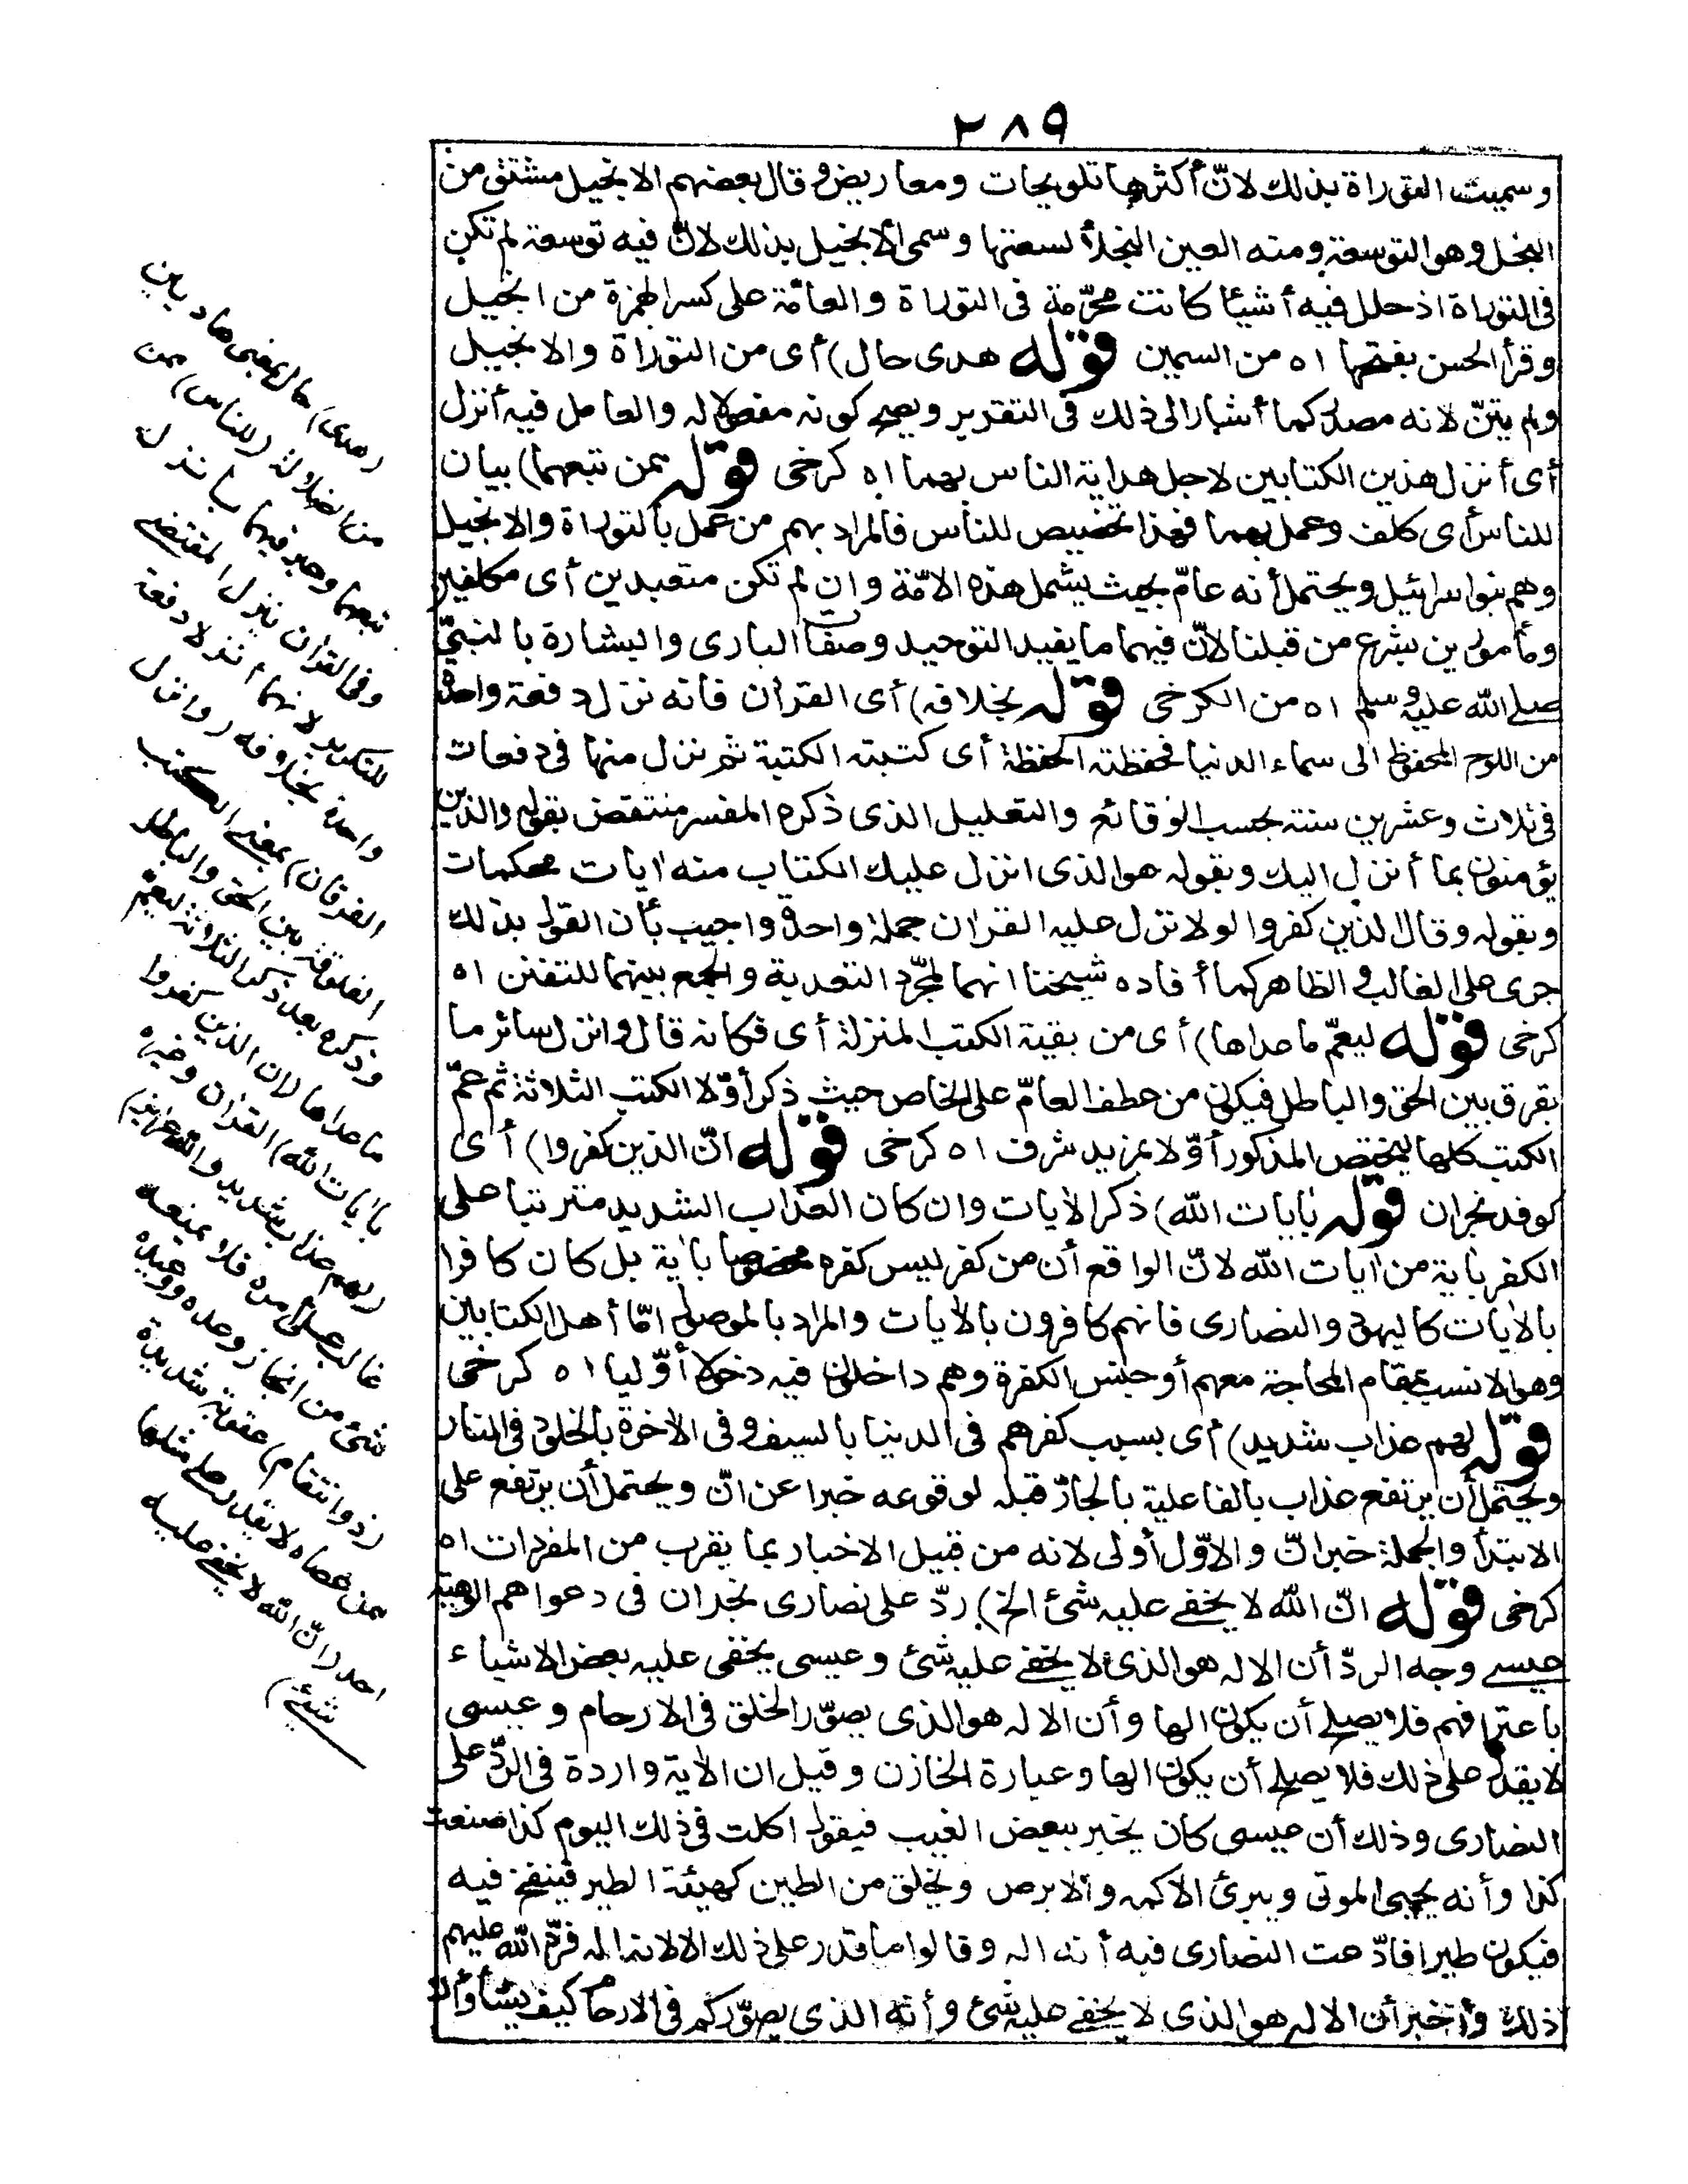 ٢٨٩
وسميت التوراة بذلك لانّ أكثرها تلويحات ومعاريض وقال بعضهم الانجيل مشتق من
النجل وهو التوسعة ومنه العين النجلأ لسعتها وسمى ألانجيل بذلك لانّ فيه توسعة لم تكن
فى التوراة اذ حلل فيه أشيئا كانت محرّمة فى التوراة والعامّة على كسر الهمزة من انجيل
وقرأ الحسن بفتحها اه من السمين قوله هدى حال) أى من التوراة والانجيل
ولم يثنّ لانه مصدر كما أشار الى ذلك فى التقدير ويصح كونه مفعولا له والعامل فيه أنزل
أى أنزل هذين الكتابين لاجل هداية الناس بهما اه كرخى قوله ممن تبعهما) بيان
للناس أى كلف وعمل بهما فهذا تخصيص للناس فالمراد بهم من عمل بالتوراة والانجيل
وهم بنو اسرائيل ويحتمل أنه عامّ بحيث يشمل هذه الامّة وان لم تكن متعبدين أى مكلفين
ومأمورين بشرع من قبلنا لانّ فيهما ما يفيد التوحيد وصفات البارى والبشارة بالنبىّ
صلى الله عليه وسلم اه من الكرخى قوله بخلافه) أى القرآن فانه نزل دفعة واحدة
من اللوح المحفوظ الى سماء الدنيا فحفظته الحفظة أى كتبته الكتبة ثم نزل منها فى دفعات
فى ثلاث وعشرين سنة بحسب الوقائع والتعليل الذى ذكره المفسر منتقض بقوله والذين
يؤمنون بما أنزل اليك وبقوله هو الذى انزل عليك الكتاب منه آيات محكمات
وبقوله وقال الذين كفروا لولا نزل عليه القرآن جملة واحدة واجيب بأن القول بذلك
جرى على الغالب فى الظاهر كما أفاده شيخنا انهما لمجرّد التعدية والجمع بينهما للتفنن اه
كرخى قوله ليعمّ ما عداها) أى من بقية الكتب المنزلة أى فكانه قال وانزل سائر ما
يفرق بين الحق والباطل فيكون من عطف العامّ على الخاص حيث ذكر أوّلا الكتب الثلاثة ثم عمّ
الكتب كلها ليختص المذكور أوّلا بمزيد شرف اه كرخى قوله انّ الذين كفروا) أى
كوفد نجران قوله بآيات الله) ذكر الآيات وان كان العذاب الشديد مترتبا على
الكفر بآية من آيات الله لانّ الواقع أن من كفر ليس كفره مخصوصا بآية بل كان كافرا
بالآيات كاليهود والنصارى فانهم كافرون بالآيات والمراد بالموصول امّا أهل الكتابين
وهو الانسب بمقام المحاجة معهم أو جنس الكفرة وهم داخلون فيه دخولا أوّليا اه كرخى
قوله لهم عذاب شديد) أى بسبب كفرهم فى الدنيا بالسيف وفى الآخرة بالخلود فى النار
ويحتمل أن يرتفع عذاب بالفاعلية بالجارّ قبله لوقوعه خبرا عن انّ ويحتمل أن يرتفع على
الابتدأ والجملة خبر انّ والاوّل أولى لانه من قبيل الاخبار بما يقرب من المفردات اه
كرخى قوله انّ الله لا يخفى عليه شئ الخ) ردّ على نصارى نجران فى دعواهم الوهية
عيسى وجه الردّ أن الاله هو الذى لا يخفى عليه شئ وعيسى يخفى عليه بعض الاشياء
باعترافهم فلا يصلح أن يكون الها وأن الاله هو الذى يصوّر الخلق فى الارحام وعيسى
لا يقدر على ذلك فلا يصلح أن يكون الها وعبارة الخازن وقيل ان الآية واردة فى الردّ على
النصارى وذلك أن عيسى كان يخبر ببعض الغيب فيقول اكلت فى ذلك اليوم كذا صنعت
كذا وأنه يحيى الموتى ويبرئ الاكمه والابرص ويخلق من الطين كهيئة الطير فينفخ فيه
فيكون طيرا فادّعت النصارى فيه أنه اله وقالوا ما قدر على ذلك الا لانه اله فردّ الله عليهم
ذلك وأخبر أن الاله هو الذى لا يخفى عليه شئ وأنه الذى يصوّركم فى الارحام كيف يشأ وأن
(هدى) حال بمعنى هاديين
من الضلالة (للناس) ممن
تبعهما وعبر فيهما بأنزل
وفى القرآن بنزل المقتضى
للتكرير لانهما أنزلا دفعة
واحدة بخلافه (وانزل
الفرقان) بمعنى الكتب
الفارقة بين الحق والباطل
وذكره بعد ذكر الثلاثة ليعمّ
ما عداها (ان الذين كفروا
بآيات الله) القرآن وغيره
(لهم عذاب شديد والله عزيز)
غالب على أمره فلا يمنعه
شئ من انجاز وعده ووعيده
(ذو انتقام) عقوبة شديدة
ممن عصاه لا يقدر على مثلها
احد (انّ الله لا يخفى عليه
شئ)